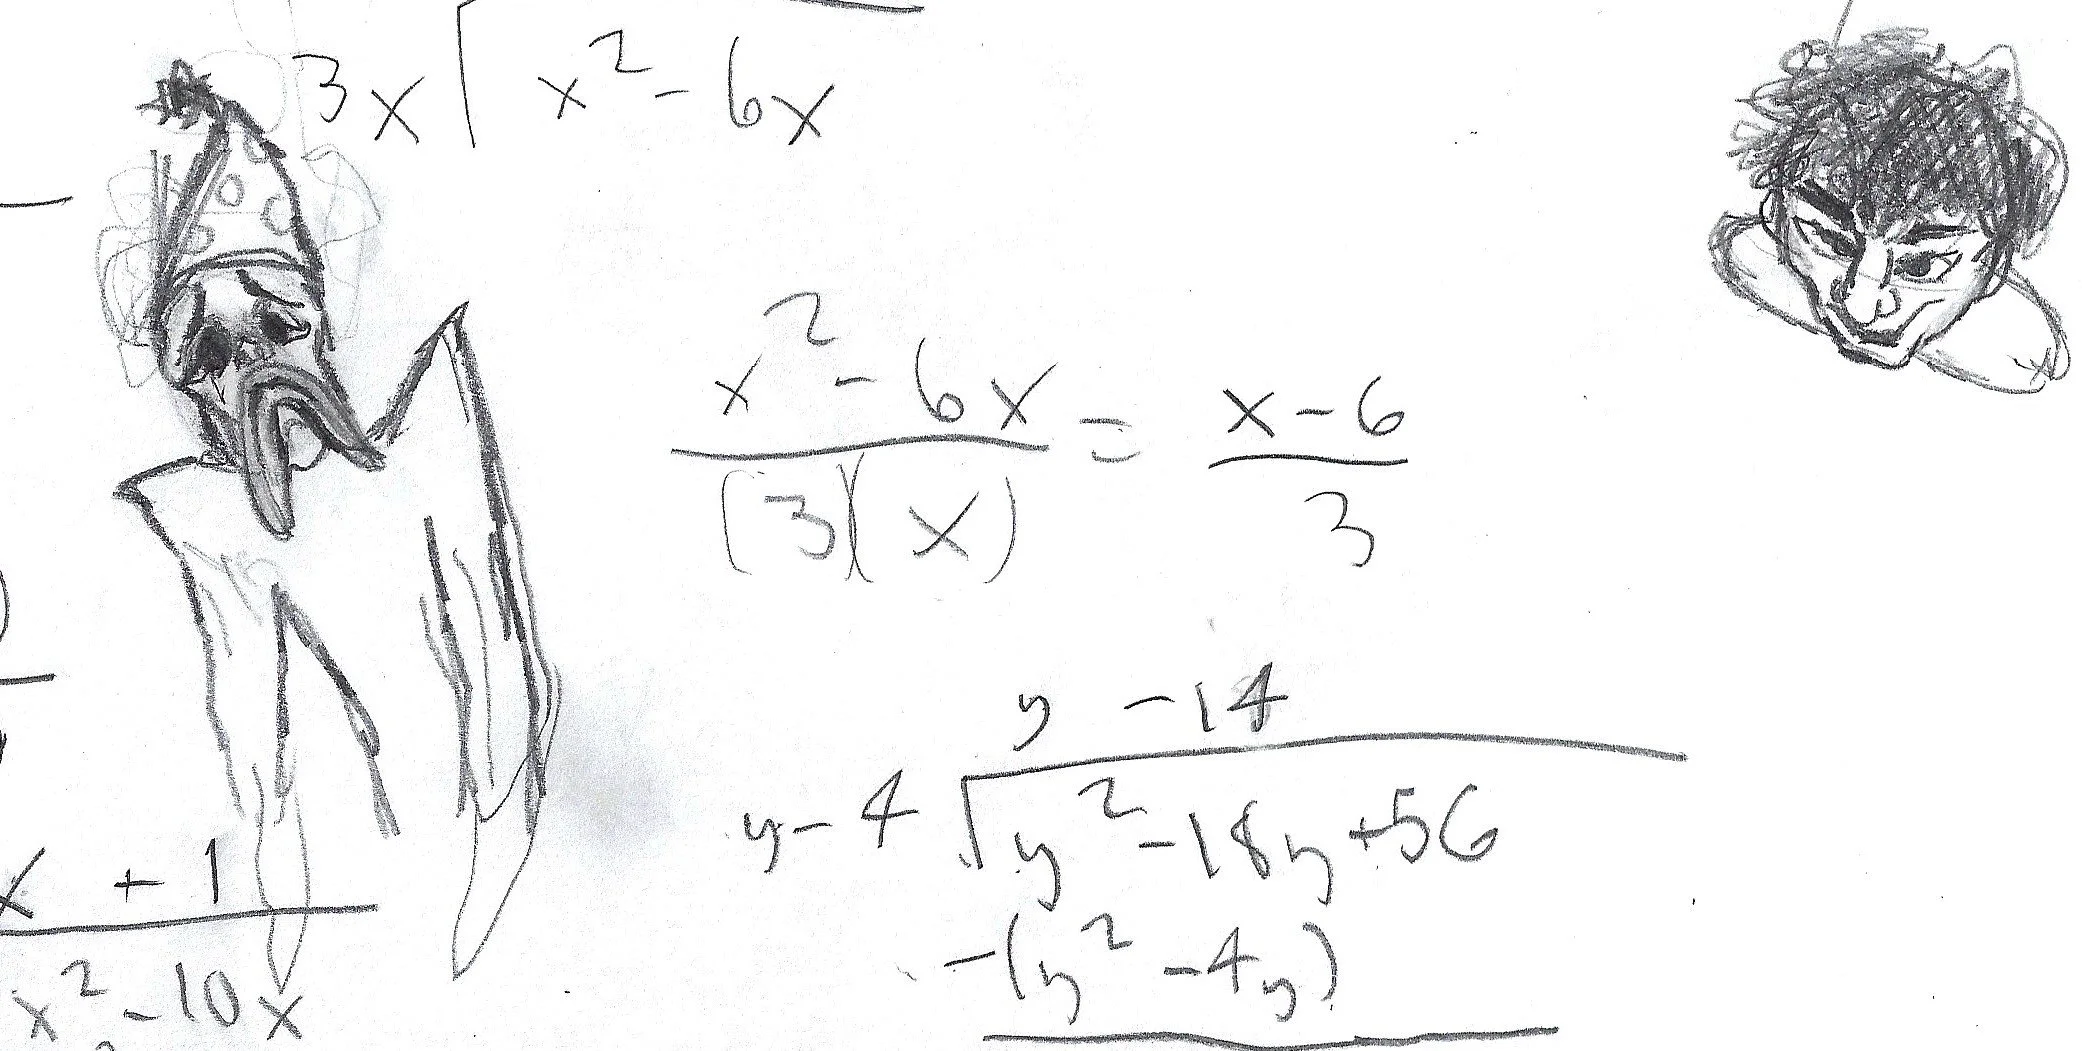 3x √ x² - 6x
x² - 6x / (3)(x) = x - 6 / 3
y - 14
y - 4 √ y² - 18y + 56
-(y² - 4y)
x + 1
x² - 10x